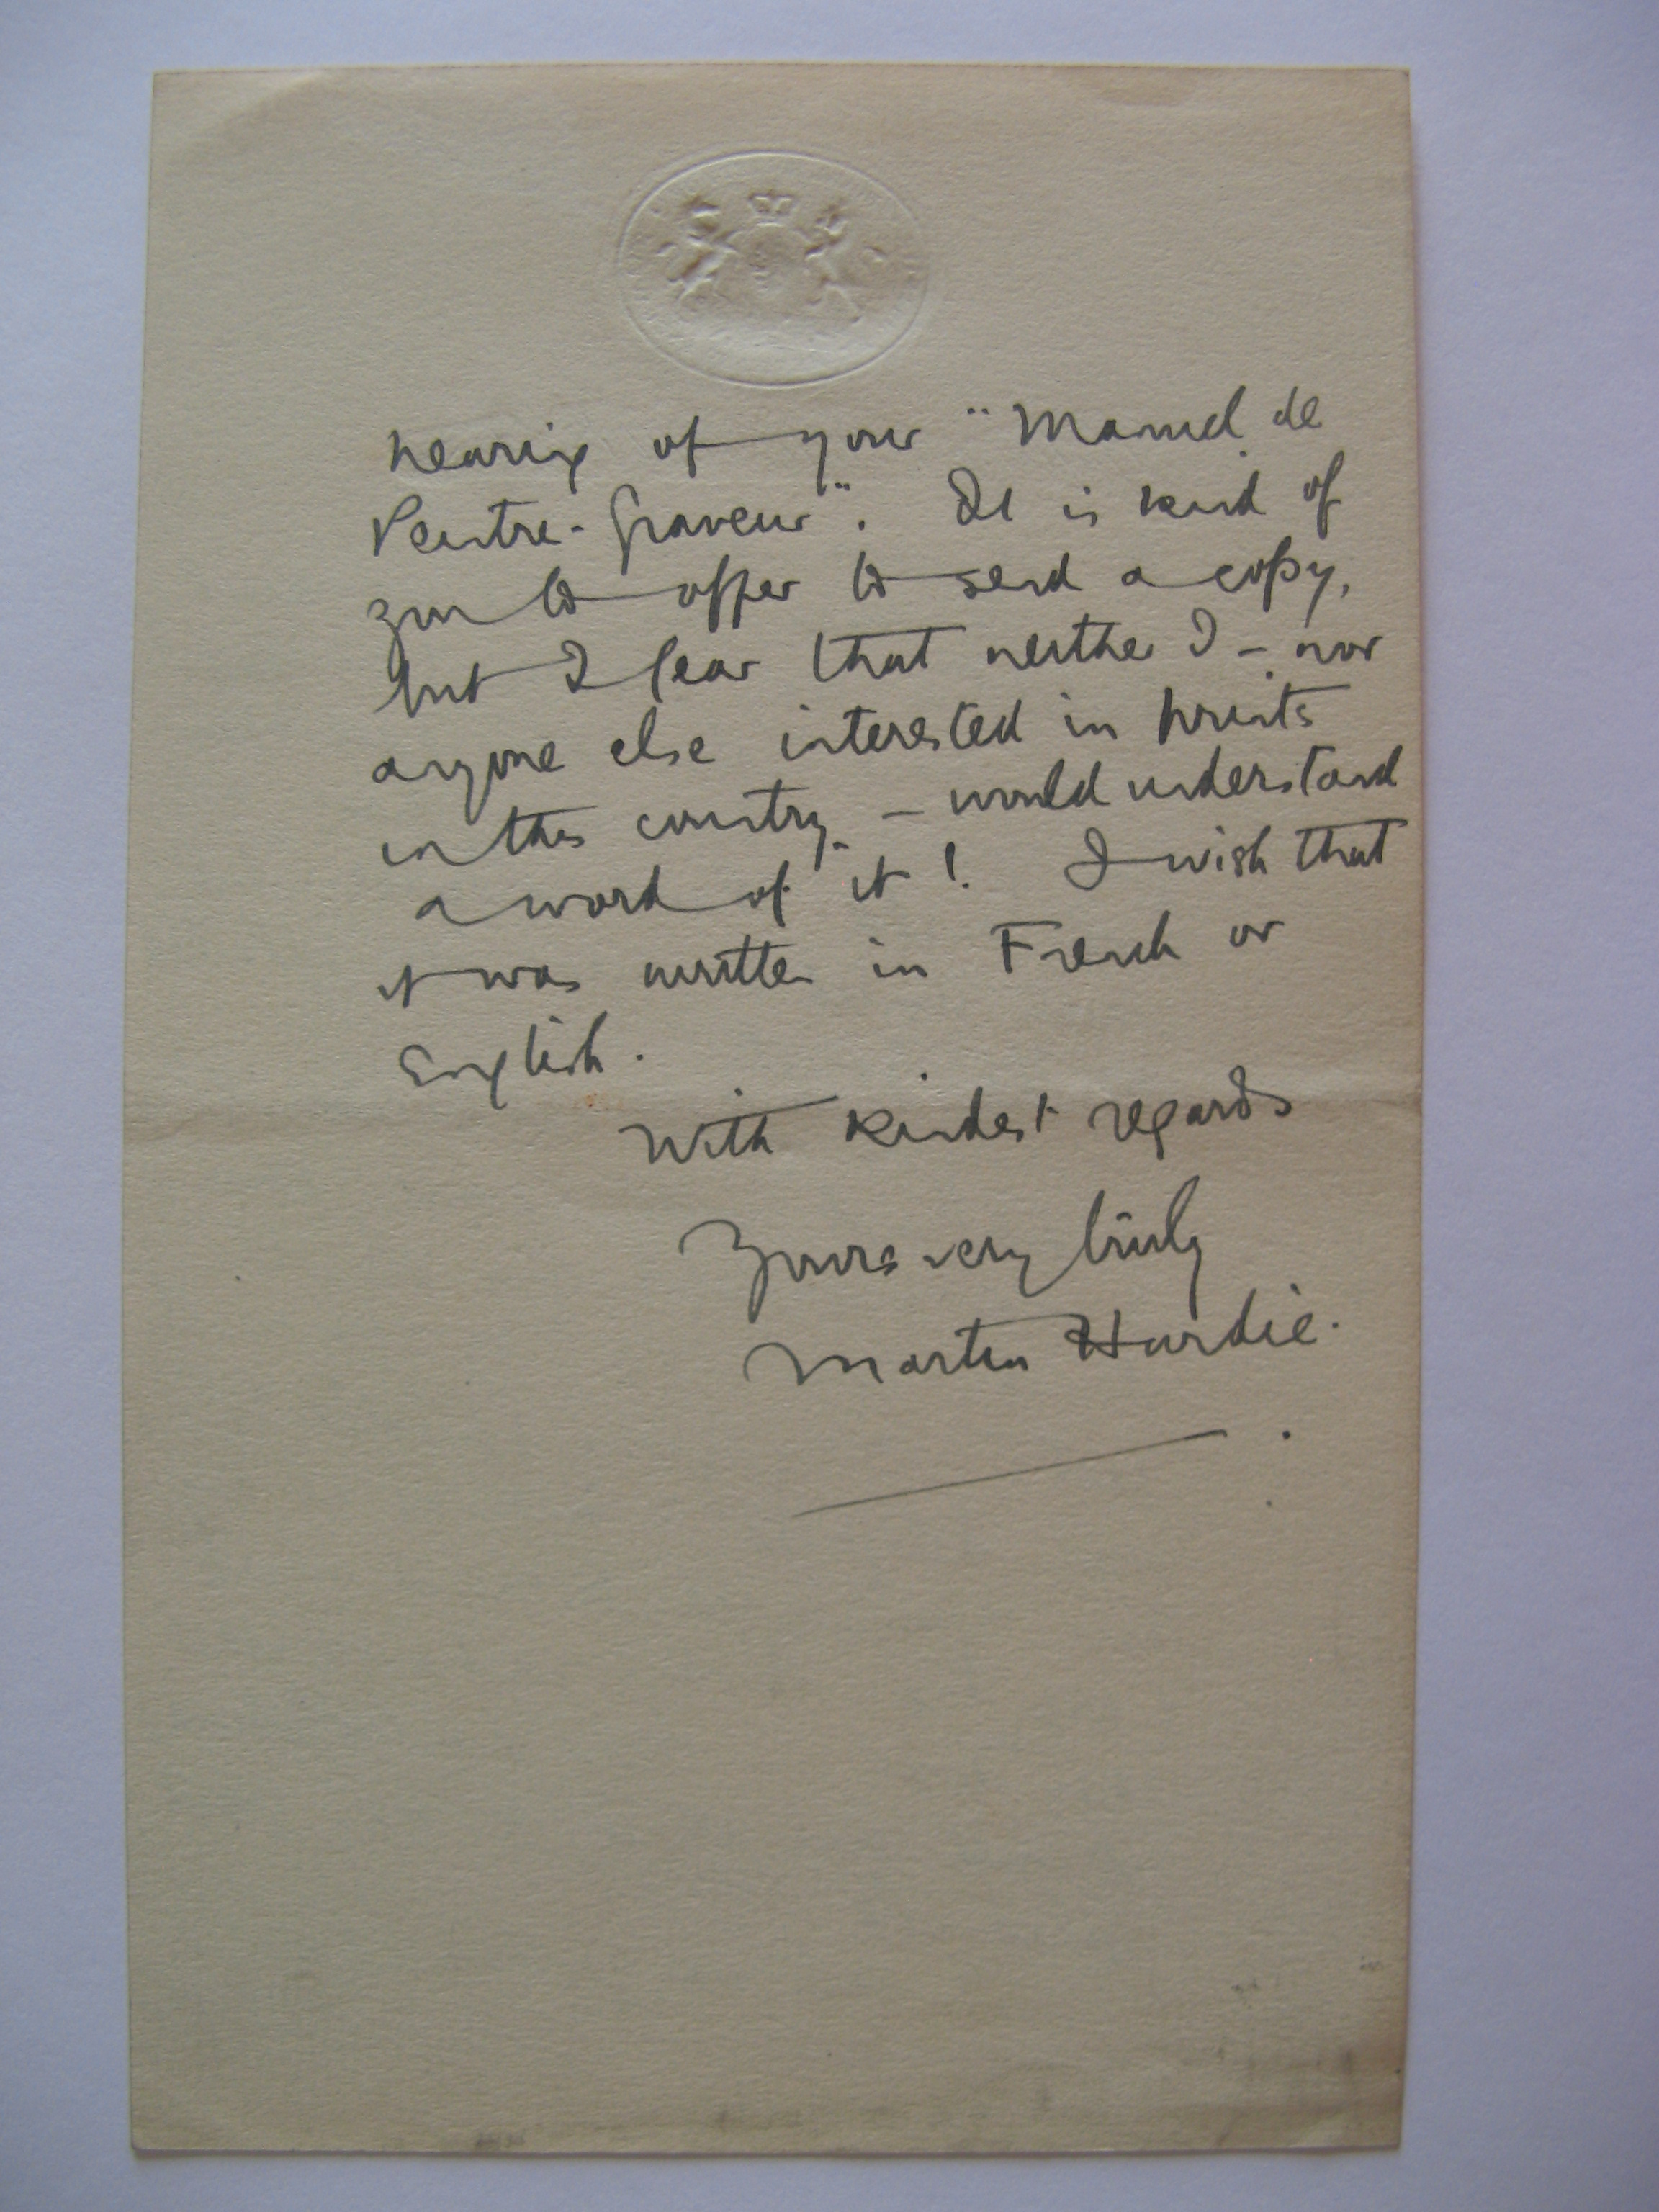 hearing of your "Manuel de
Peintre-Graveur". It is kind of
you to offer to send a copy,
but I fear that neither I - nor
anyone else interested in prints
in this country - would understand
a word of it! I wish that
it was written in French or
English.
With kindest regards
Yours very truly
Martin Hardie.